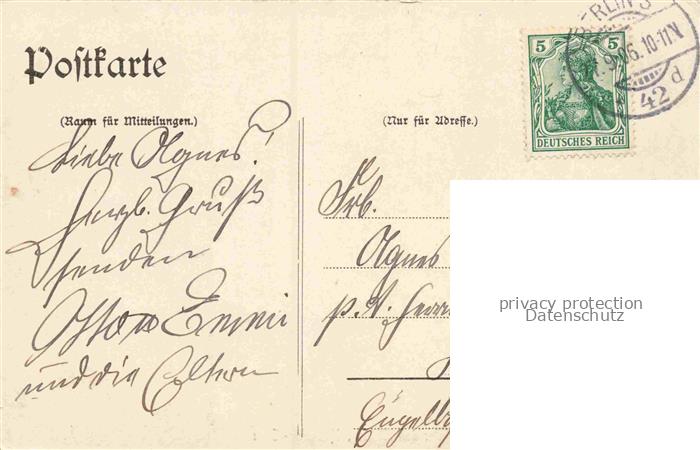 Postkarte
(Raum für Mitteilungen.)
Liebe Agnes!
Herzl. Gruß
senden
Otto u Emmi
und die Eltern
(Nur für Adresse.)
5 5
DEUTSCHES REICH
BERLIN S
9.06. 10-11V
42 d
Frl.
Agnes
p. A. Herrn
privacy protection
Datenschutz